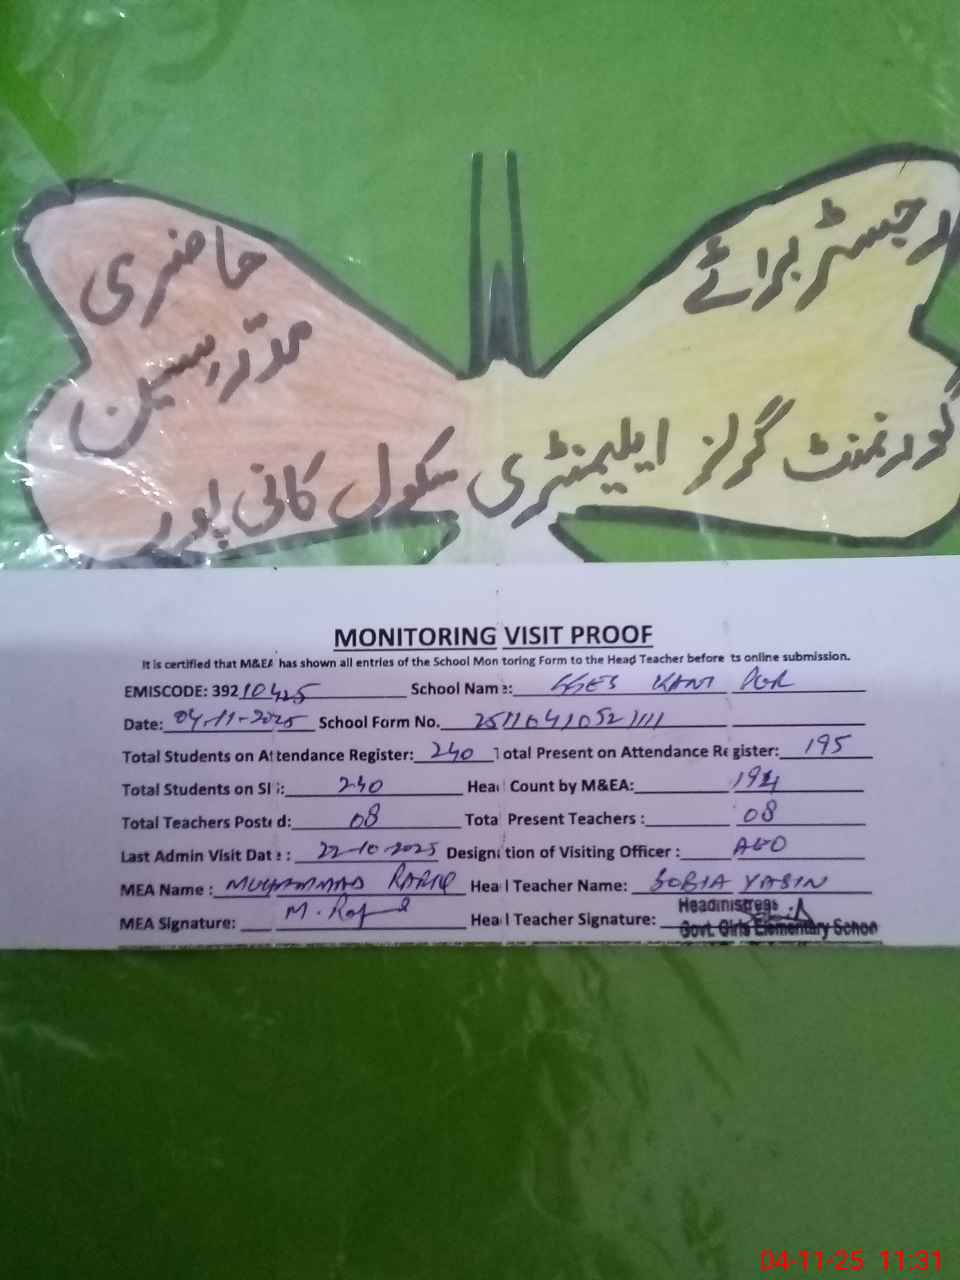 رجسٹر برائے
حاضری
مدّرسین
گورنمنٹ گرلز ایلیمنٹری سکول کانی پور
MONITORING VISIT PROOF
It is certified that M&EA has shown all entries of the School Monitoring Form to the Head Teacher before its online submission.
EMISCODE: 39210425 School Name: GGES KANI POR
Date: 04-11-2025 School Form No. 25110410521111
Total Students on Attendance Register: 240 Total Present on Attendance Register: 195
Total Students on SIS: 240 Head Count by M&EA: 194
Total Teachers Posted: 08 Total Present Teachers : 08
Last Admin Visit Date : 22-10-2025 Designation of Visiting Officer : AEO
MEA Name : MUHAMMAD RAFIQ Head Teacher Name: SOBIA YASIN
MEA Signature: M. Rafiq Head Teacher Signature:
Headmistress
Govt. Girls Elementary School
04-11-25 11:31